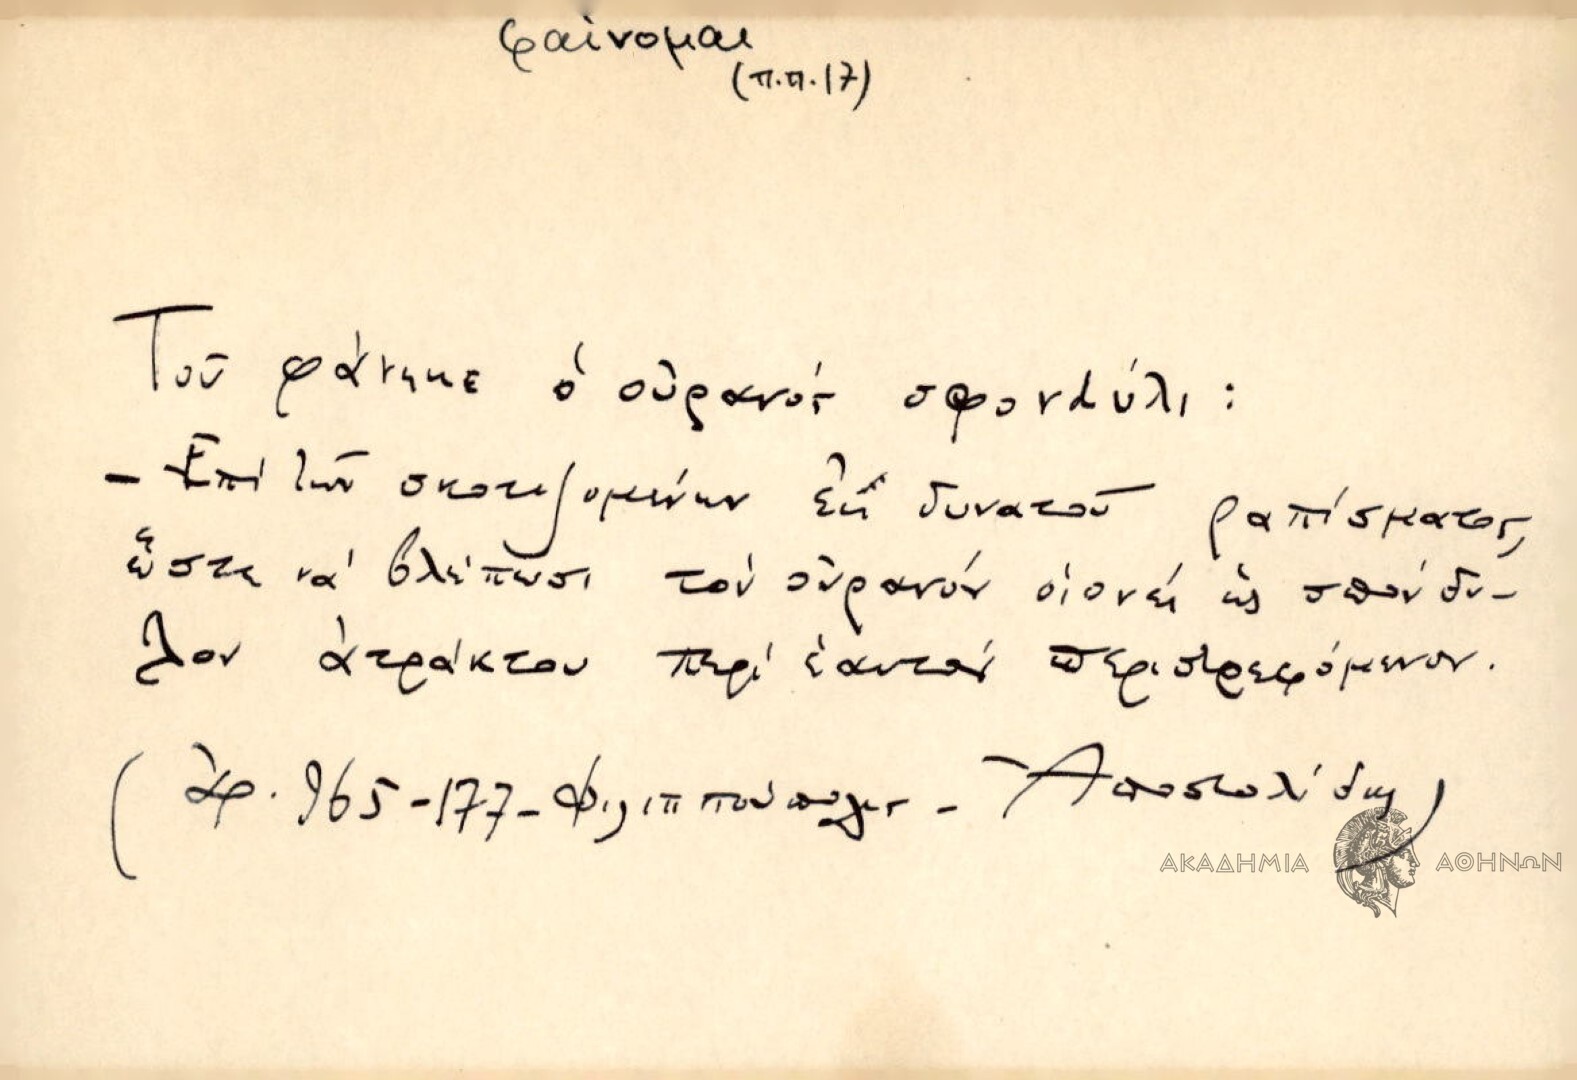 φαίνομαι
(π.π.17)
Τοῦ φάνηκε ὁ οὐρανός σφοντύλι:
- Ἐπί τῶν σκοτιζομένων ἐκ δυνατοῦ ραπίσματος,
ὥστε νά βλέπωσι τόν οὐρανόν οἱονεί ὡς σπόνδυ-
λον ἀτράκτου περί ἑαυτόν περιστρεφόμενον.
(ἀρ. 965-177-Φιλιππούπολις - Ἀποστολίδης)
ΑΚΑΔΗΜΙΑ ΑΘΗΝΩΝ